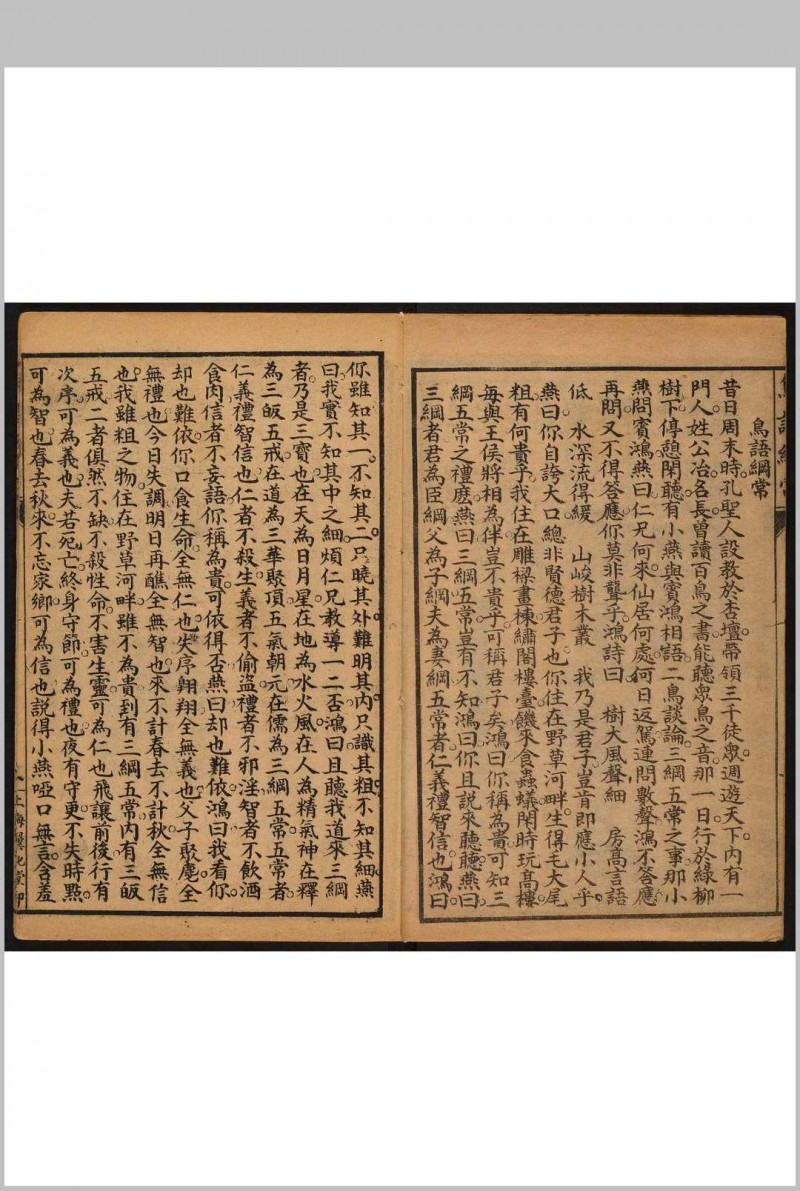 鳥語綱常
昔日周末時。孔聖人設教於杏壇。帶領三千徒衆。週遊天下。內有一
門人姓公冶名長。曾讀百鳥之書。能聽衆鳥之音。那一日行於綠柳
樹下停憩。閑聽有小燕與賓鴻相語。二鳥談論三綱五常之事。那小
燕問賓鴻。燕曰。仁兄何來。仙居何處。何日返駕。連問數聲。鴻不答應。
再問又不得答應。你莫非聾乎。鴻詩曰 樹大風聲細 房高言語
低 水深流得緩 山峻樹木叢 我乃是君子。豈肯即應小人乎。
燕曰。你自誇大口。總非賢德君子也。你住在野草河畔。生得毛大尾
粗。有何貴乎。我住在雕樑畫棟。繡閣樓臺。饑來食蟲蟻。閑時玩高樓。
每與王侯將相為伴。豈不貴乎。可稱君子矣。鴻曰。你稱為貴。可知三
綱五常之禮麽。燕曰。三綱五常。豈有不知。鴻曰。你且說來聽聽。燕曰。
三綱者。君為臣綱。父為子綱。夫為妻綱。五常者。仁義禮智信也。鴻曰。
你雖知其一。不知其二。只曉其外。難明其內。只識其粗。不知其細。燕
曰。我實不知其中之細。煩仁兄教導一二否。鴻曰。且聽我道來。三綱
者。乃是三寶也。在天為日月星。在地為水火風。在人為精氣神。在釋
為三皈五戒。在道為三華聚頂。五氣朝元。在儒為三綱五常。五常者。
仁義禮智信也。仁者不殺生。義者不偷盜。禮者不邪淫。智者不飲酒
食肉。信者不妄語。你稱為貴。可依得否。燕曰。却也難依。鴻曰。我看你
却也難依。你口食生命。全無仁也。失序翱翔。全無義也。父子聚塵。全
無禮也。今日失調。明日再醮。全無智也。來不計春。去不計秋。全無信
也。我雖粗之物。住在野草河畔。雖不為貴。到有三綱五常。內有三皈
五戒。二者俱然不缺。不殺性命。不害生靈。可為仁也。飛讓前後。行有
次序。可為義也。夫若死亡。終身守節。可為禮也。夜有守更。不失時點。
可為智也。春去秋來。不忘家鄉。可為信也。說得小燕啞口無言。含羞